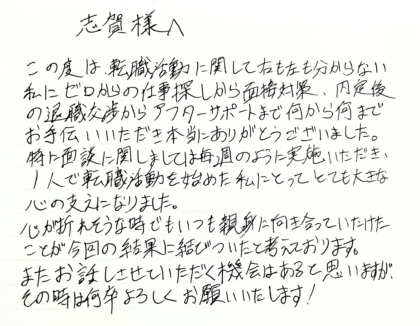 志賀様へ
この度は、転職活動に関して右も左も分からない
私にゼロからの仕事探しから面接対策、内定後
の退職交渉からアフターサポートまで何から何まで
お手伝いいただき本当にありがとうございました。
特に面談に関しましては毎週のように実施いただき、
1人で転職活動を始めた私にとってとても大きな
心の支えになりました。
心が折れそうな時でもいつも親身に向き合っていただけた
ことが今回の結果に結びついたと考えております。
またお話しさせていただく機会はあると思いますが、
その時は何卒よろしくお願いいたします!